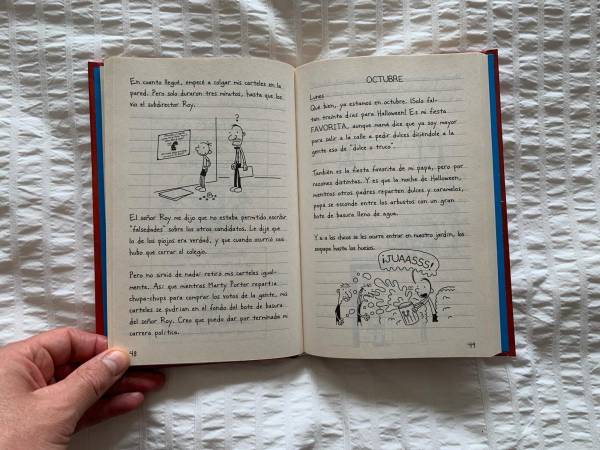 En cuanto llegué, empecé a colgar mis carteles en la
pared. Pero solo duraron tres minutos, hasta que los
vio el subdirector Roy.
?
El señor Roy me dijo que no estaba permitido escribir
"falsedades" sobre los otros candidatos. Le dije que
lo de los piojos era verdad, y que cuando ocurrió casi
hubo que cerrar el colegio.
Pero no sirvió de nada: retiró mis carteles igual-
mente. Así que mientras Marty Porter repartía
chupa-chups para comprar los votos de la gente, mis
carteles se pudrían en el fondo del bote de basura
del señor Roy. Creo que puedo dar por terminada mi
carrera política.
48
OCTUBRE
Lunes
Qué bien, ya estamos en octubre. ¡Solo fal-
tan treinta días para Halloween! Es mi fiesta
FAVORITA, aunque mamá dice que ya soy mayor
para salir a la calle a pedir dulces diciéndole a la
gente eso de "dulce o truco".
También es la fiesta favorita de mi papá, pero por
razones distintas. Y es que la noche de Halloween,
mientras otros padres reparten dulces y caramelos,
papá se esconde entre los arbustos con un gran
bote de basura lleno de agua.
Y si a los chicos se les ocurre entrar en nuestro jardín, los
empapa hasta los huesos.
¡JUAASSS!
49